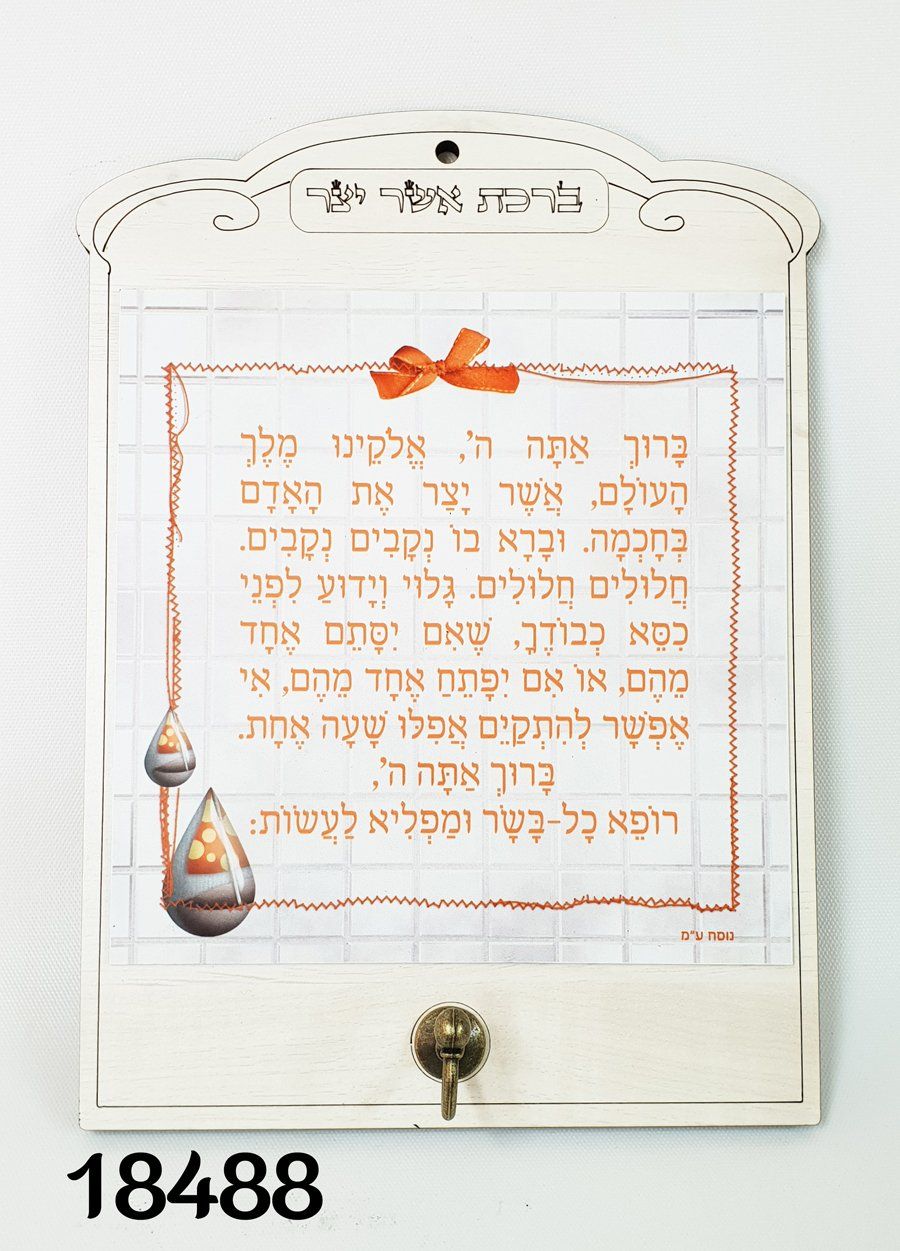 ברכת אשר יצר
בָּרוּךְ אַתָּה ה', אֱלֹקֵינוּ מֶלֶךְ
הָעוֹלָם, אֲשֶׁר יָצַר אֶת הָאָדָם
בְּחָכְמָה. וּבָרָא בוֹ נְקָבִים נְקָבִים.
חֲלוּלִים חֲלוּלִים. גָּלוּי וְיָדוּעַ לִפְנֵי
כִסֵּא כְבוֹדֶךָ, שֶׁאִם יִסָּתֵם אֶחָד
מֵהֶם, אוֹ אִם יִפָּתֵחַ אֶחָד מֵהֶם, אִי
אֶפְשָׁר לְהִתְקַיֵּם אֲפִלּוּ שָׁעָה אֶחָת.
בָּרוּךְ אַתָּה ה',
רוֹפֵא כָל-בָּשָׂר וּמַפְלִיא לַעֲשׂוֹת:
נוסח ע"מ
18488